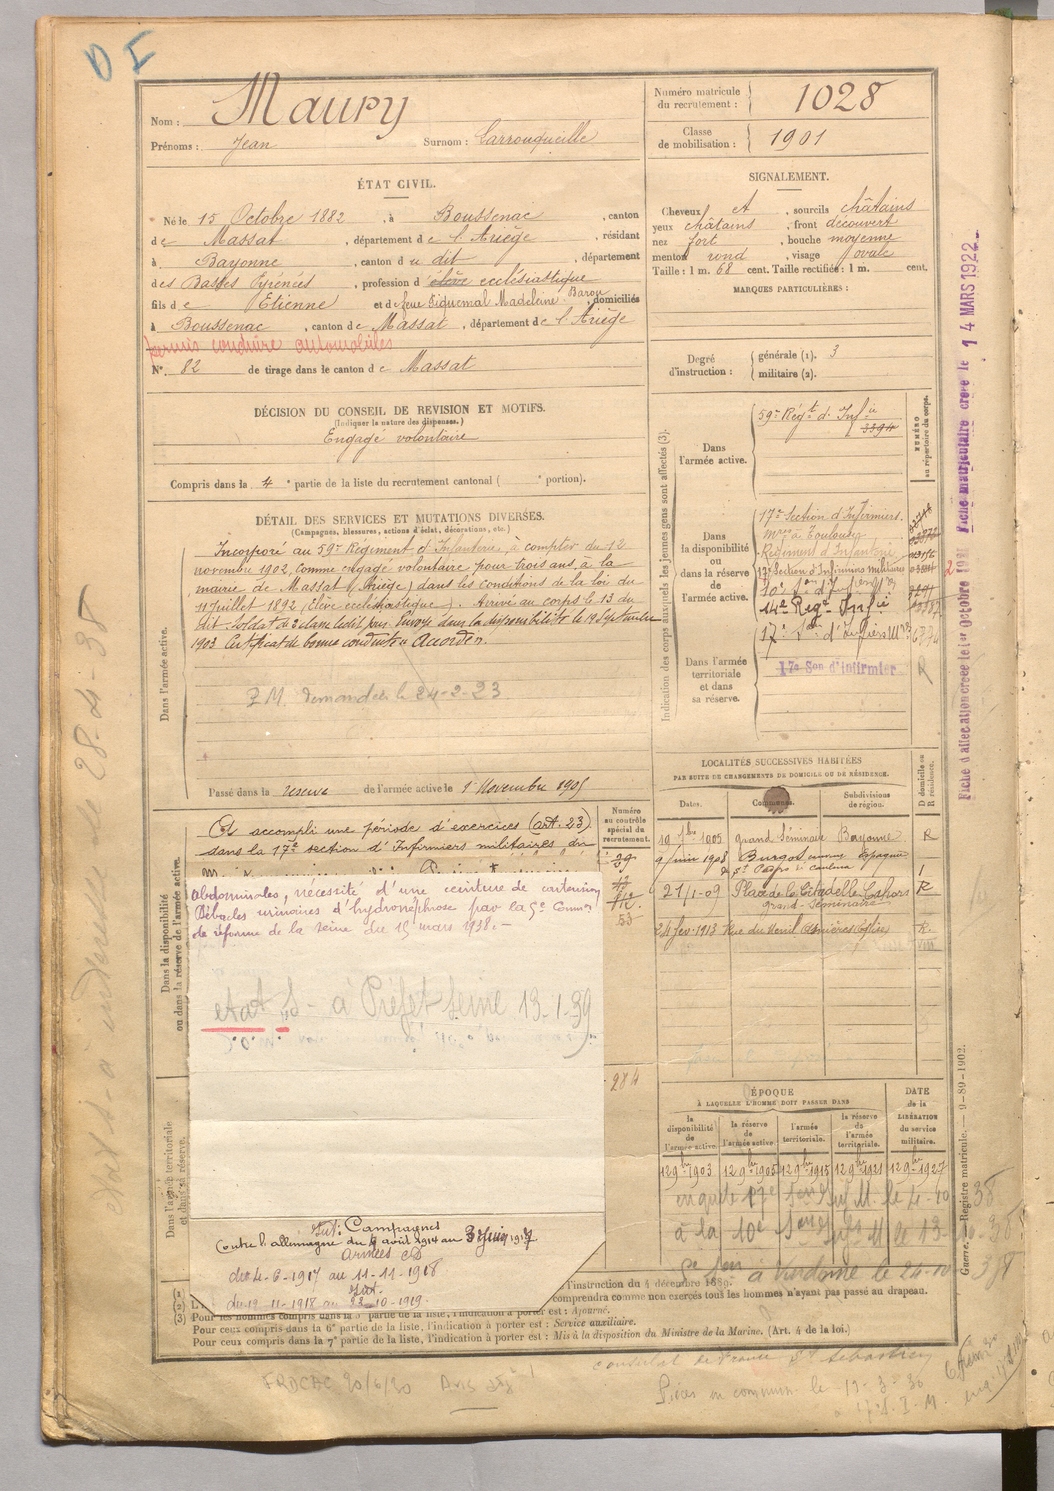 D I
Nom : Maury
Prénoms : Jean Surnom : Larrouqueille
Numéro matricule du recrutement : 1028
Classe de mobilisation : 1901
ÉTAT CIVIL.
Né le 15 Octobre 1882, à Boussenac, canton
de Massat, département de l'Ariège, résidant
à Bayonne, canton du dit, département
des Basses Pyrénées, profession d'élève ecclésiastique
fils de Etienne et de feue Piquemal Madeleine Baron, domiciliés
à Boussenac, canton de Massat, département de l'Ariège
permis conduire automobiles
N° 82 de tirage dans le canton de Massat
SIGNALEMENT.
Cheveux et, sourcils châtains
yeux châtains, front découvert
nez fort, bouche moyenne
menton rond, visage ovale
Taille : 1 m. 68 cent. Taille rectifiée : 1 m. cent.
MARQUES PARTICULIÈRES :
Degré d'instruction : générale (1). 3
militaire (2).
DÉCISION DU CONSEIL DE REVISION ET MOTIFS.
(Indiquer la nature des dispenses.)
Engagé volontaire
Compris dans la 4e partie de la liste du recrutement cantonal ( e portion).
DÉTAIL DES SERVICES ET MUTATIONS DIVERSES.
(Campagnes, blessures, actions d'éclat, décorations, etc.)
Dans l'armée active.
Incorporé au 59e Régiment d'Infanterie, à compter du 12
novembre 1902, comme engagé volontaire pour trois ans, à la
mairie de Massat (Ariège) dans les conditions de la loi du
11 juillet 1892 (élève ecclésiastique). Arrivé au corps le 13 du
dit. Soldat de 2e classe ledit jour. Envoyé dans la disponibilité le 19 Septembre
1903 Certificat de bonne conduite Accordé.
F.M. demandée le 24-2-23
Passé dans la réserve de l'armée active le 1er Novembre 1905
Indication des corps auxquels les jeunes gens sont affectés (3).
NUMÉRO au répertoire du corps.
Dans l'armée active.
59e Régt d'Infie
3394
Dans la disponibilité ou dans la réserve de l'armée active.
17e Section d'Infirmiers
mres à Toulouse
Régiment d'Infanterie
17e Section d'Infirmiers militaires
14e Régt Infie
Dans l'armée territoriale et dans sa réserve.
17e Son d'Infirmier
R
Fiche d'allocation créée le 1er Octobre 1921 Fiche matriculaire créée le 14 MARS 1922
2
Dans la disponibilité ou dans la réserve de l'armée active.
Numéro au contrôle spécial du recrutement.
A accompli une période d'exercices (art. 23)
dans la 17e section d'Infirmiers militaires du
abdominales, nécessité d'une ceinture de contention
Débâcles urinaires d'hydronéphrose par la 5e Comon
de réforme de la Seine du 15 mars 1938. -
etat S - à Préfet Seine 13-1-39
53
284
LOCALITÉS SUCCESSIVES HABITÉES
PAR SUITE DE CHANGEMENTS DE DOMICILE OU DE RÉSIDENCE.
Dates. Communes. Subdivisions de région. D domicile ou R résidence.
grand Séminaire Bayonne R
9 juin 1908 Burgos Espagne
21/1-09 Place de la Citadelle Cahors R
grand-Séminaire
24 fev-1913 Rue du Menil Asnières R.
Dans l'armée territoriale et dans sa réserve.
ÉPOQUE
À LAQUELLE L'HOMME DOIT PASSER DANS
la disponibilité de l'armée active. la réserve de l'armée active. l'armée territoriale. la réserve de l'armée territoriale.
DATE de la LIBÉRATION du service militaire.
12 9bre 1903 12 9bre 1905 12 9bre 1915 12 9bre 1921 12 9bre 1927
à la 10e
le 24-10-38
Int: Campagnes
Contre l'allemagne du 4 août 1914 au 3 Juin 1917
Armées CD
du 4-6-1917 au 11-11-1918
Int.
du 12-11-1918 au 22-10-1919.
l'instruction du 4 décembre 1889.
comprendra comme non exercés tous les hommes n'ayant pas passé au drapeau.
Pour les hommes compris dans la 5e partie de la liste, l'indication à porter est : Ajourné.
Pour ceux compris dans la 6e partie de la liste, l'indication à porter est : Service auxiliaire.
Pour ceux compris dans la 7e partie de la liste, l'indication à porter est : Mis à la disposition du Ministre de la Marine. (Art. 4 de la loi.)
Guerre. — Registre matricule. — 9-89-1902.
consulat de France St Sébastien
Pièces en commun. le 13-3-36
28-4-38